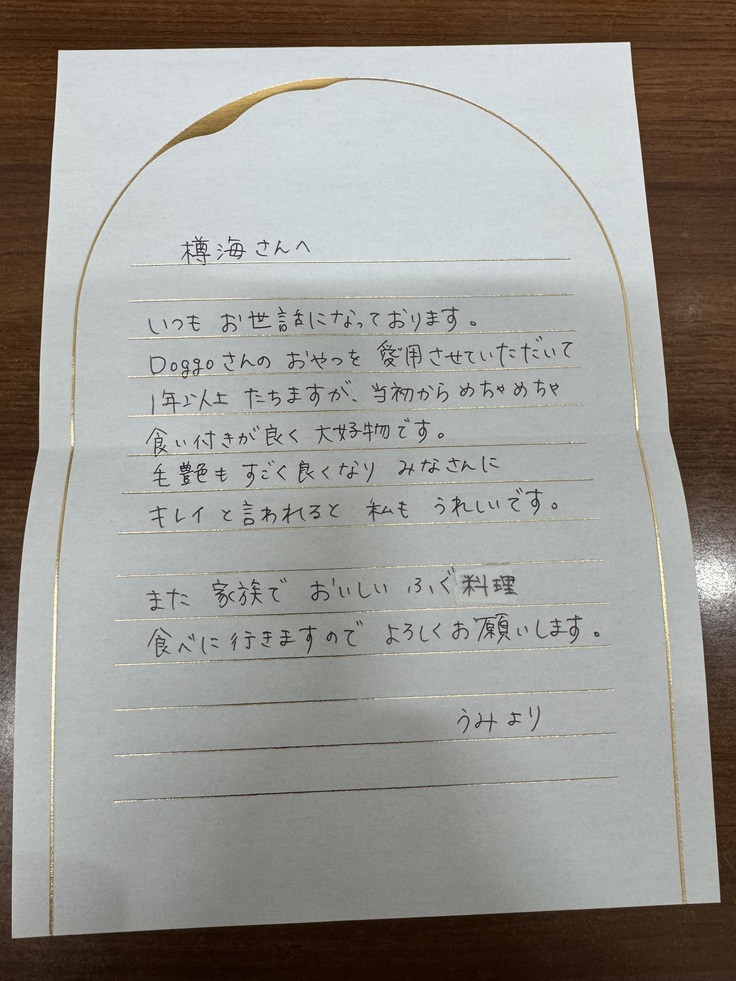 樽海さんへ
いつも お世話になっております。
Doggoさんの おやつを 愛用させていただいて
1年以上 たちますが、当初から めちゃめちゃ
食い付きが良く 大好物です。
毛艶も すごく良くなり みなさんに
キレイ と言われると 私も うれしいです。
また 家族で おいしい ふぐ料理
食べに行きますので よろしくお願いします。
うみより